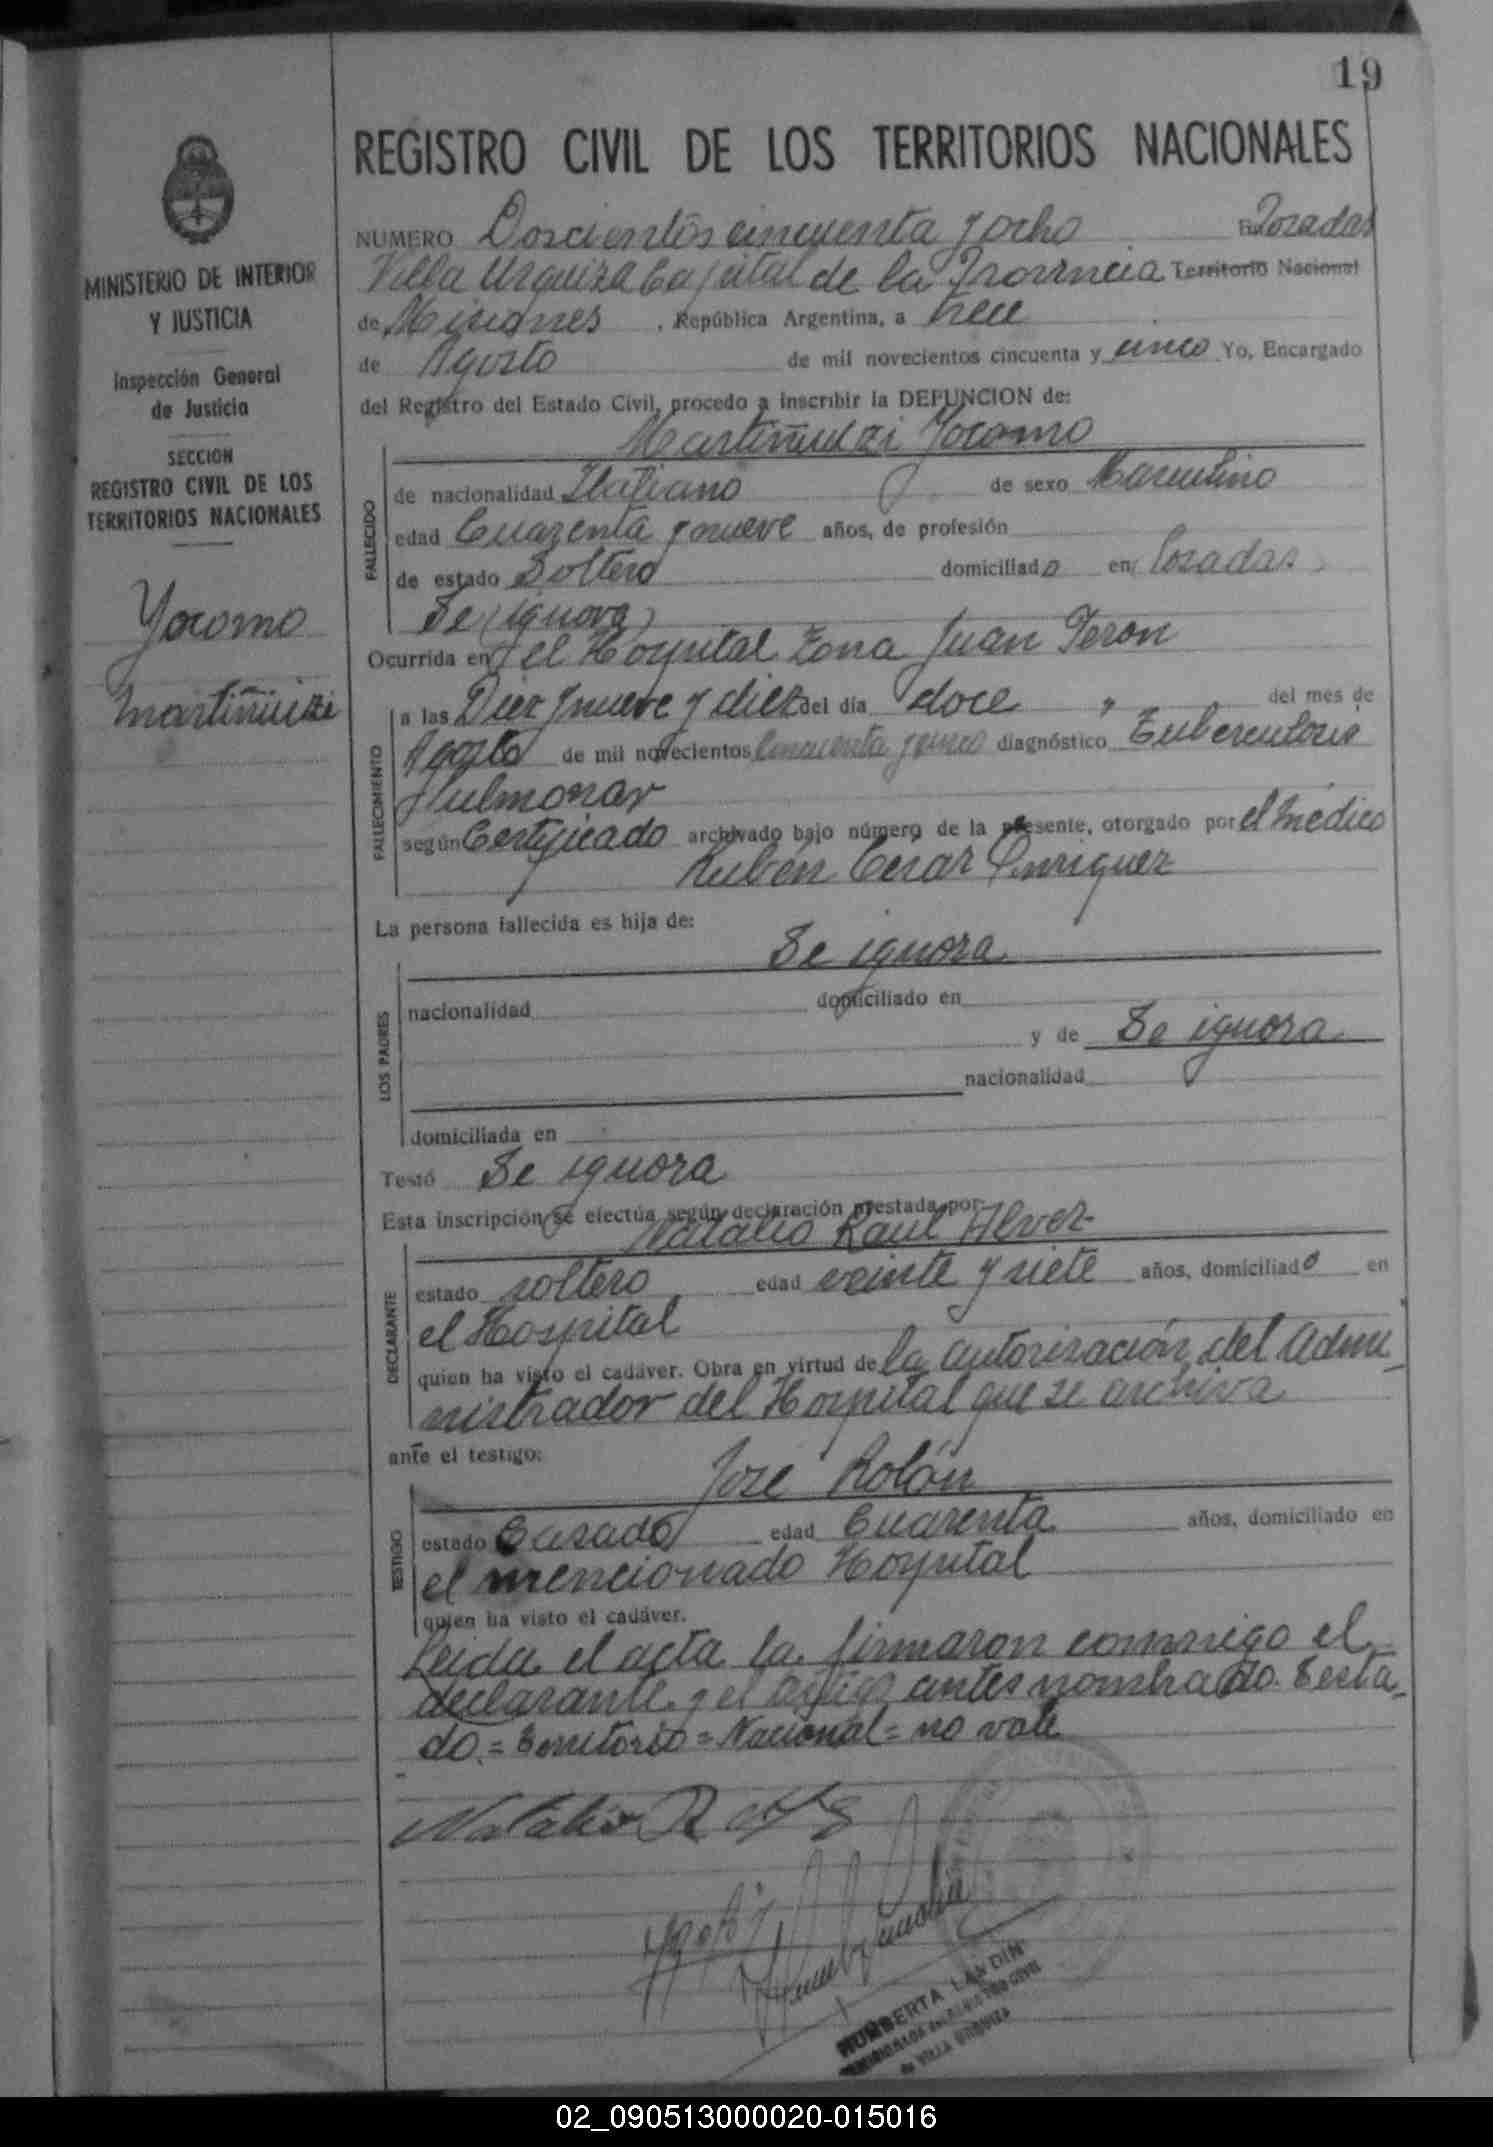 19
REGISTRO CIVIL DE LOS TERRITORIOS NACIONALES
MINISTERIO DE INTERIOR
Y JUSTICIA
Inspección General
de Justicia
SECCION
REGISTRO CIVIL DE LOS
TERRITORIOS NACIONALES
Yocomo
Martiñuizi
NUMERO Doscientos cincuenta y ocho En Posadas
Villa Urquiza Capital de la Provincia Territorio Nacional
de Misiones, República Argentina, a trece
de Agosto de mil novecientos cincuenta y cinco Yo, Encargado
del Registro del Estado Civil, procedo a inscribir la DEFUNCION de:
Yocomo
FALLECIDO
de nacionalidad Italiano de sexo Masculino
edad Cuarenta y nueve años, de profesión
de estado Soltero domiciliado en Posadas
Se ignora
Ocurrida en el Hospital Zona Juan Peron
FALLECIMIENTO
a las Diez y nueve y diez del día doce del mes de
Agosto de mil novecientos Cincuenta y cinco diagnóstico Tuberculosis
Pulmonar
según Certificado archivado bajo número de la presente, otorgado por el médico
Ruben Cesar Enriquez
La persona fallecida es hija de:
Se ignora
LOS PADRES
nacionalidad domiciliado en
y de Se ignora
nacionalidad
domiciliada en
Testó Se ignora
Esta inscripción se efectúa según declaración prestada por:
Natalio Raul Alvez
DECLARANTE
estado soltero edad veinte y siete años, domiciliado en
el Hospital
quien ha visto el cadáver. Obra en virtud de la autorización del Admi
nistrador del Hospital que se archiva
ante el testigo:
José Rolón
TESTIGO
estado Casado edad Cuarenta años, domiciliado en
el mencionado Hospital
quien ha visto el cadáver.
Leida el acta la firmaron conmigo el
declarante y el testigo antes nombrado. Testa-
do = Territorio = Nacional = no vale
Natalio R
HUMBERTA LANDIN
de VILLA URQUIZA
02_090513000020-015016